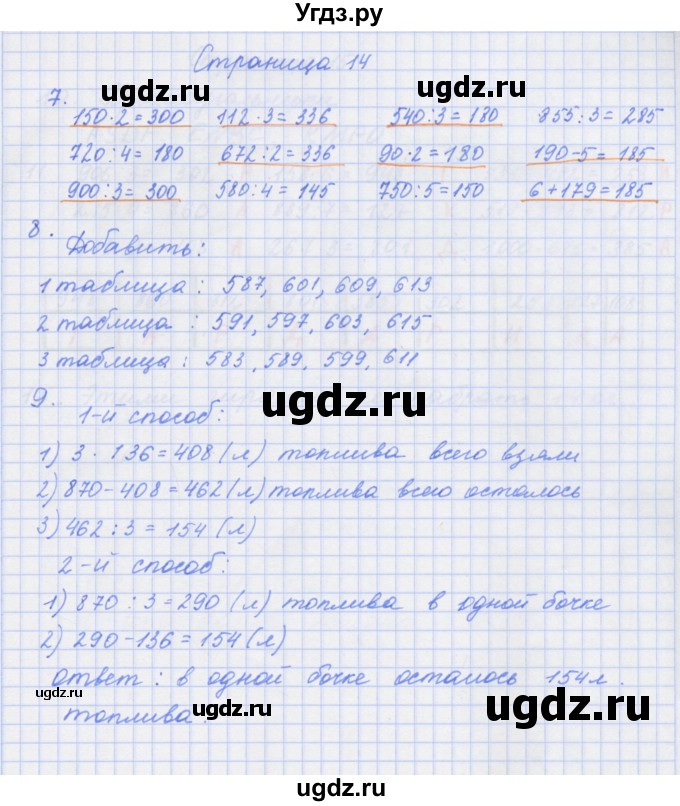 Угдз.ру
Страница 14
7.
150·2=300 112·3=336 540:3=180 855:3=285
720:4=180 672:2=336 90·2=180 190-5=185
900:3=300 580:4=145 750:5=150 6+179=185
8.
Добавить:
1 таблица: 587, 601, 609, 613
2 таблица: 591, 597, 603, 615
3 таблица: 583, 589, 599, 611
9.
1-й способ:
1) 3·136=408 (л) топлива всего взяли
2) 870-408=462 (л) топлива всего осталось
3) 462:3=154 (л)
2-й способ:
1) 870:3=290 (л) топлива в одной бочке
2) 290-136=154 (л)
Ответ: в одной бочке осталось 154 л.
топлива.
ugdz.ru
ugdz.ru
ugdz.ru
ugdz.ru
ugdz.ru
ugdz.ru
ugdz.ru
ugdz.ru